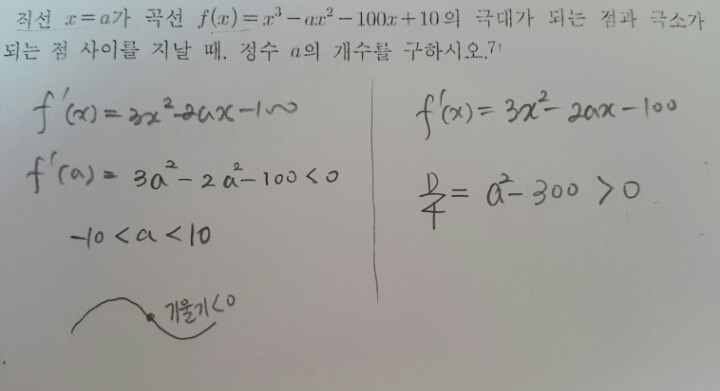 직선 x=a가 곡선 f(x)=x³-ax²-100x+10의 극대가 되는 점과 극소가
되는 점 사이를 지날 때, 정수 a의 개수를 구하시오.7)
f'(x)=3x²-2ax-100
f'(a)= 3a²-2a²-100<0
-10<a<10
기울기<0
f'(x)=3x²-2ax-100
D/4 = a²-300>0